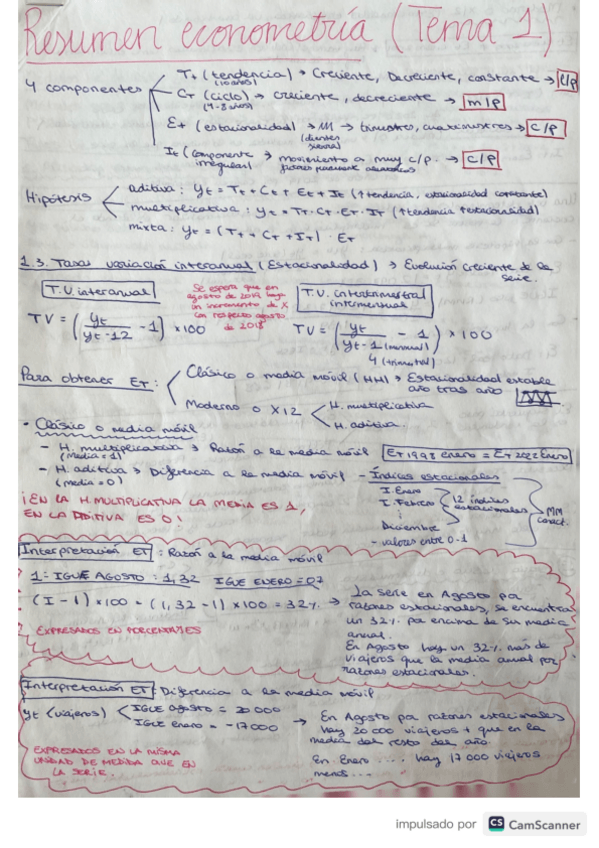 Resumen econometría (Tema 1)
4 componentes
Tt (tendencia) → Creciente, Decreciente, constante → l/p
(10 años)
Ct (ciclo) → creciente, decreciente → m/p
Et (estacionalidad) → M → trimestre, cuatrimestres → c/p
(dientes sierra)
It (componente irregular) → movimiento a muy c/p. → c/p
Hipótesis
aditiva: yt = Tt + Ct + Et + It (↑tendencia, estacionalidad constante)
multiplicativa: yt = Tt · Ct · Et · It (↑tendencia ↑estacionalidad)
mixta: yt = (Tt + Ct + It) · Et
1.3. Tasas variación interanual (Estacionalidad) → Evolución creciente de la serie.
T.V. interanual
Se espera que en agosto de 2019 haya un incremento de X con respecto agosto de 2018
T.V. intertrimestral intermensual
TV = (yt / yt-12 - 1) × 100
TV = (yt / yt-1 (mensual) - 1) × 100
4 (trimestral)
Para obtener Et:
Clásico o media móvil (MM) → Estacionalidad estable año tras año
Moderno o X12
H. multiplicativa
H. aditiva.
- Clásico o media móvil
- H. multiplicativa → Razón a la media móvil
(media = 1)
Et 1998 enero = Et 2022 Enero
- H. aditiva → Diferencia a la media móvil
(media = 0)
- Índices estacionales
I. Enero
I. Febrero
Diciembre
12 índices estacionales
- valores entre 0-1
MM
¡EN LA H. MULTIPLICATIVA LA MEDIA ES 1,
EN LA ADITIVA ES 0!
Interpretación Et: Razón a la media móvil
1 = IGUE AGOSTO = 1,32 IGUE ENERO = 07
(I - 1) × 100 = (1,32 - 1) × 100 = 32% →
La serie en Agosto por
razones estacionales, se encuentra
un 32% por encima de su media
anual.
En Agosto hay un 32% más de
viajeros que la media anual por
razones estacionales.
EXPRESADOS EN PORCENTAJES
Interpretación Et: Diferencia a la media móvil
yt (viajeros)
IGUE agosto = 20 000
IGUE enero = -17 000
→ En Agosto por razones estacionales
hay 20 000 viajeros + que en la
media del resto del año.
En Enero .... hay 17 000 viajeros
menos...
EXPRESADOS EN LA MISMA
UNIDAD DE MEDIDA QUE EN
LA SERIE.
impulsado por CS CamScanner